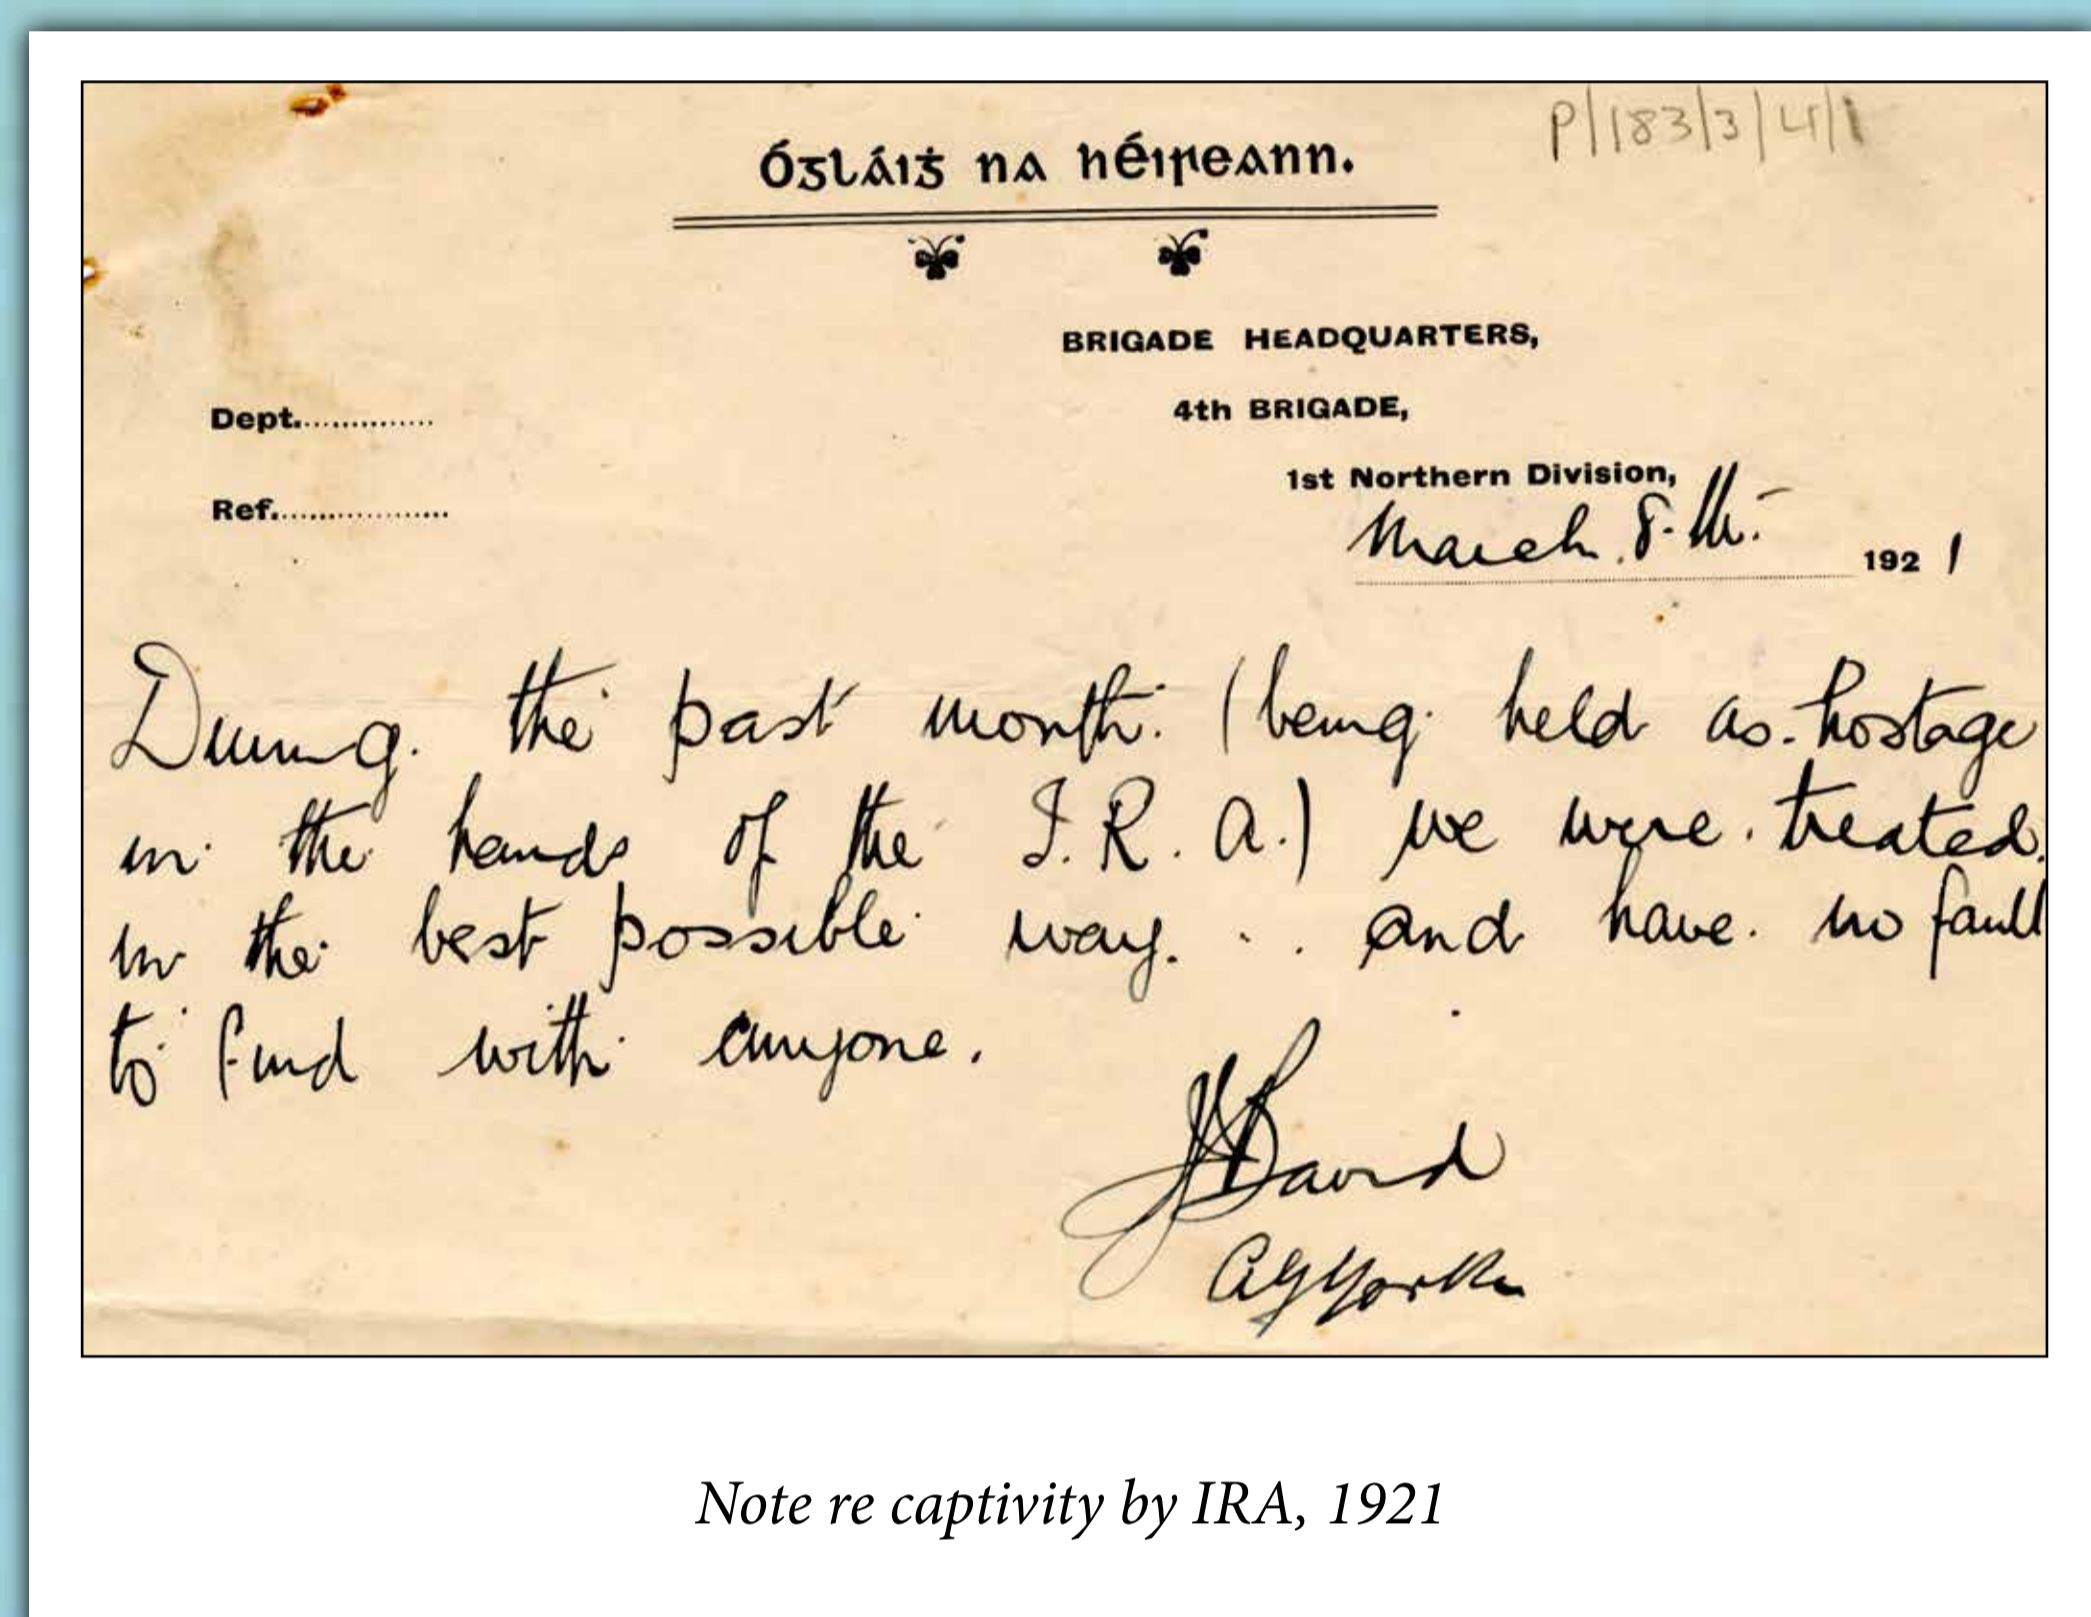 P/183/3/4/1
Ógláiġ na hÉireann.
BRIGADE HEADQUARTERS,
4th BRIGADE,
Dept..............
1st Northern Division,
Ref...................
March 8th 1921
During the past month (being held as hostage
in the hands of the I.R.A.) we were treated
in the best possible way. . . and have no fault
to find with anyone.
J David
A G Yorke
Note re captivity by IRA, 1921